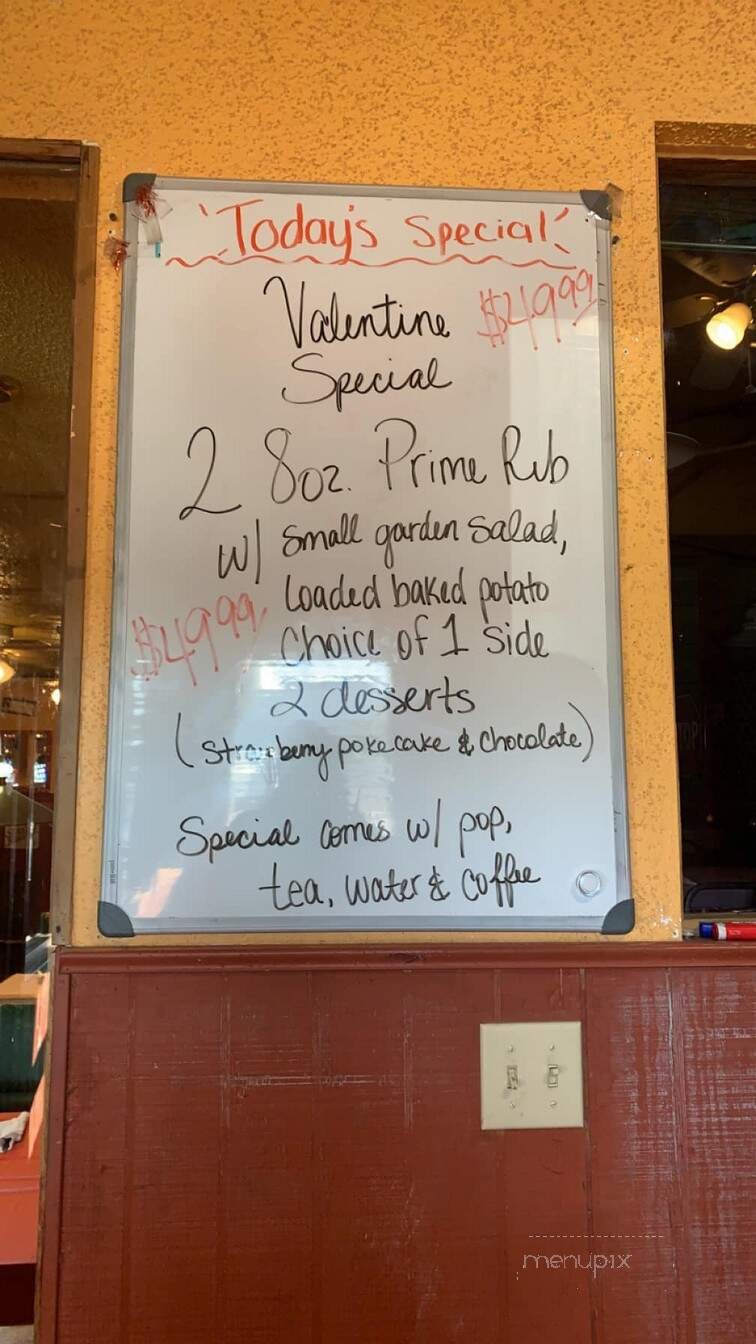 Today's Special
Valentine $49.99
Special
2 8oz. Prime Rib
w/ small garden salad,
Loaded baked potato
$49.99 Choice of 1 side
2 desserts
(strawberry pokecake & chocolate)
Special comes w/ pop,
tea, water & coffee
menupix